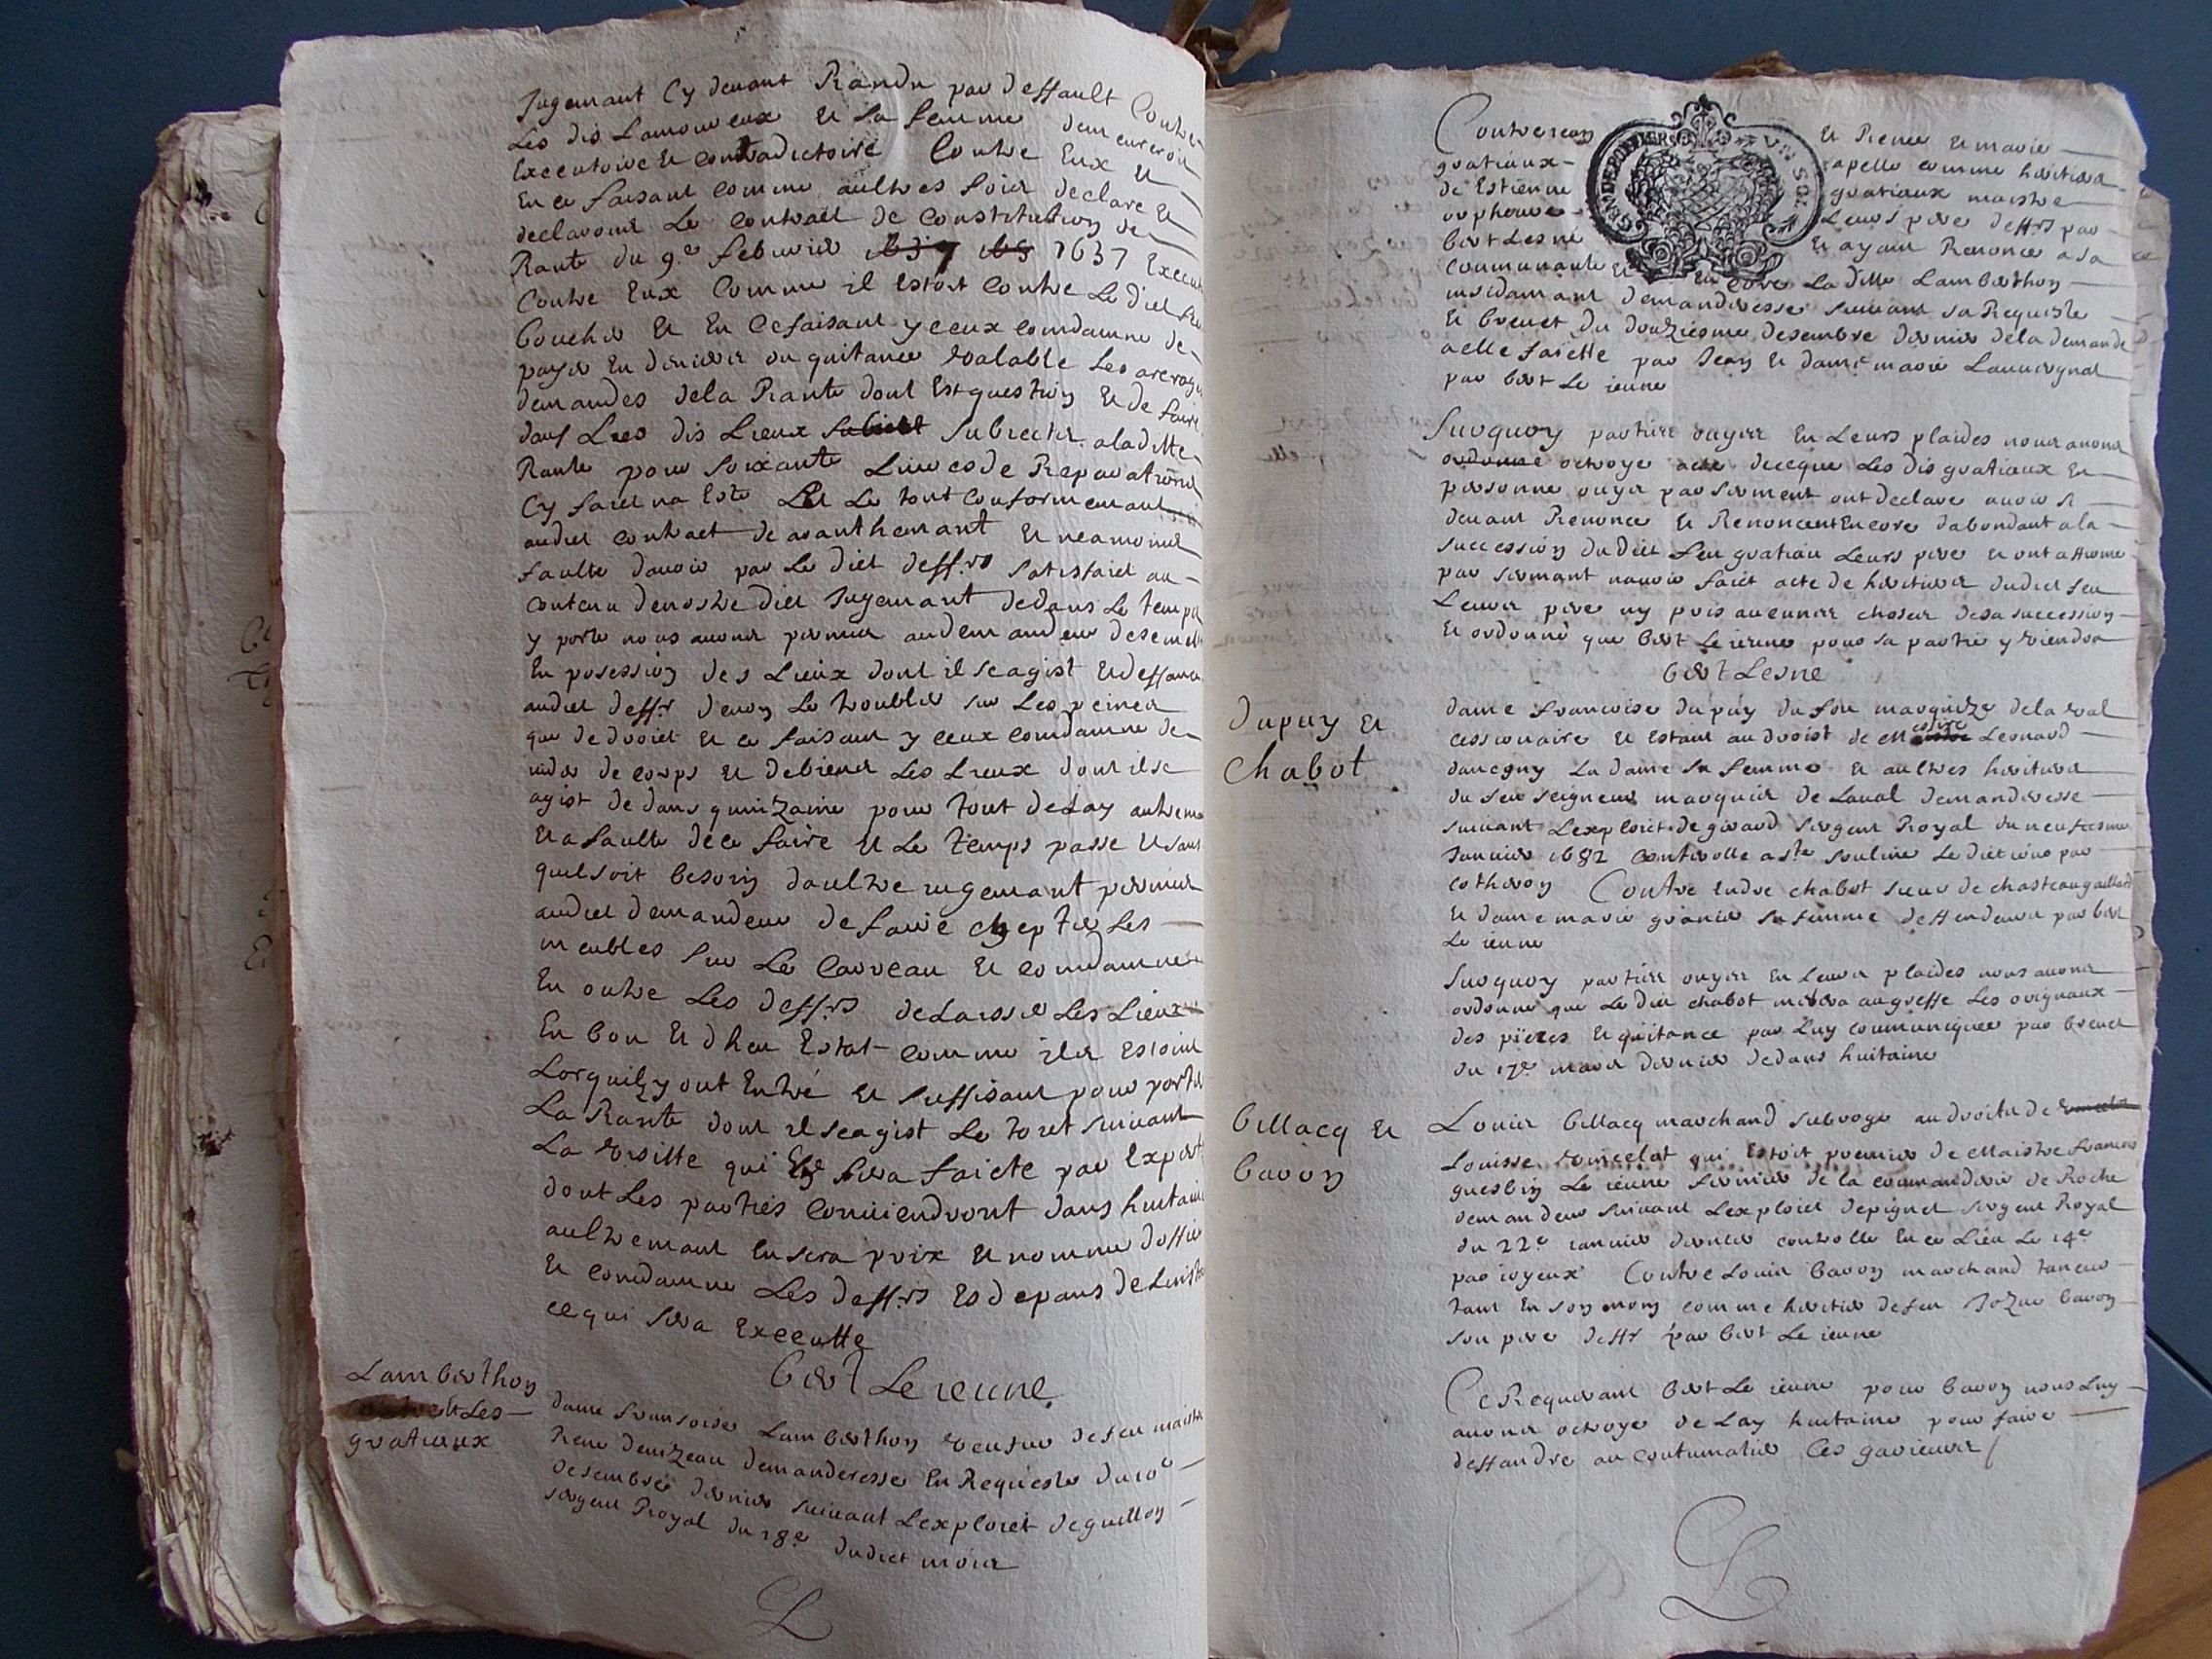 Jugemant Cy devant Randu par deffault Contre
Les dis Lamoureux Et sa femme demeureroit
Executoire Et contradictoire Contre Eux Et
En ce faisant comme aultres foix declare Et
declarons Le contract de constitution de
Rante du 9.e febvrier 1637 Execut
Contre Eux Comme il Estoit Contre Le dict feu
boucher Et En Cefaisant yceux comdamne de
payer En deniers ou quitance valable Les arerages
demandes dela Rante dont Est question Et de faire
dans Les dis Lieux subiects aladitte
Rante pour soixante Livres de Reparations
Cy faict na Este Et Le tout Conformemant
audict contract de aranthemant Et neamoins
faulte davoir par Le dict deff.rs satisfaict au
contenu denostre dict Jugemant dedans Le temps
y porte nous avons permis audemandeur desemet
En posession des Lieux dont il seagist Et deffance
audict deff.rs denoy Le troubler sur Les peines
que de droict Et ce faisant yceux comdamne de
vider de corps Et debiens Les Lieux dont ilse
agist dedans quinzaine pour tout delay autrema
Et a faulte dece faire Et Le temps passe Et sans
quil soit besoin daultre jugemant permis
audict demandeur de faire Les
meubles sur Le Carreau Et comdamne
En outre Les deff.rs delaisser Les Lieux
En bon Et dheu Estat comme ils Estoint
Lorquilz y ont Entré Et suffisant pour porter
La Rante dont il seagist Le tout suivant
La visitte qui sera faicte par Expert
dont Les parties Conviendront dans huitaine
aultremant En sera prix Et nomme doffice
Et comdamne Les deff.rs Es depans de Linstance
ce qui sera Executte
bert Le ieune
Lamberthon
Les
gratiaux
dame fransoise Lamberthon veufve defeu maistre
Rene denizeau demanderesse En Requeste du 10e
desembre dernier suivant Lexploict deguillon
sergent Royal du 18e dudict mois
Contre Jean Et Rene Et marie
gratiaux apelle comme heritiers
de Estienne gratiaux maistre
orpheuvre Leurs pere deff.rs par
bert Lesne Et ayant Renonce a sa
communaute Et En core La ditte Lamberthon
insidamant demanderesse suivant sa Requeste
Et brevet du douziesme desembre dernier dela demande
aelle faictte par Jean Et dame marie Lauvergnat
par bert Le ieune
Surquoy parties ouyes En Leurs plaides nous avons
octroye acte deceque Les dis gratiaux En
personne ouyes par serment ont declare avoir si
devant Renonce Et Renoncent Encore dabondant a la
succession dudict feu gratiau Leurs pere Et ont affirme
par sermant navoir faict acte de heritiers dudict feu
Leurs pere ny pris aucunes choses desa succession
Et ordonné que bert Le ieune pour sa partie y viendra
bert Lesne
dupuy Et
Chabot
dame francoise dupuy du fou marquize dela val
cessionaire Et Estant au droist de Messire Leonard
La dame sa femme Et aultres heritiers
du feu seigneur marquis de Laval demanderesse
suivant Lexploict de giraud sergent Royal du neufiesme
Janvier 1682 Contrerolle a ste souline Le dict iour par
cotheron Contre Andre chabot sieur de chasteaugaillard
Et dame marie granier sa femme deffendeurs par bert
Le ieune
Surquoy parties ouyes En Leurs plaides nous avons
ordonne que Le dict chabot mettra augreffe Les orignaux
des pieces Et quitance par Luy communiquees par brevet
du 17e mars dernier dedans huitaine
billacq Et
baron
Louis billacq marchand subroge audroits de
Louisse qui Estoit premier de Maistre francois
guesbin Le ieune fermier de la commanderie de Roche
demandeur suivant Lexploict depignet sergent Royal
du 22e ianvier dernier controlle En ce Lieu Le 14e
par ioyeux Contre Louis baron marchand taneur
tant En son nom comme heritier defeu Jozue baron
son pere deff.r par bert Le ieune
Ce Requerant bert Le ieune pour baron nous Luy
avons octroye de Lay huitaine pour faire
deffandre au contumatier Ces garieurs